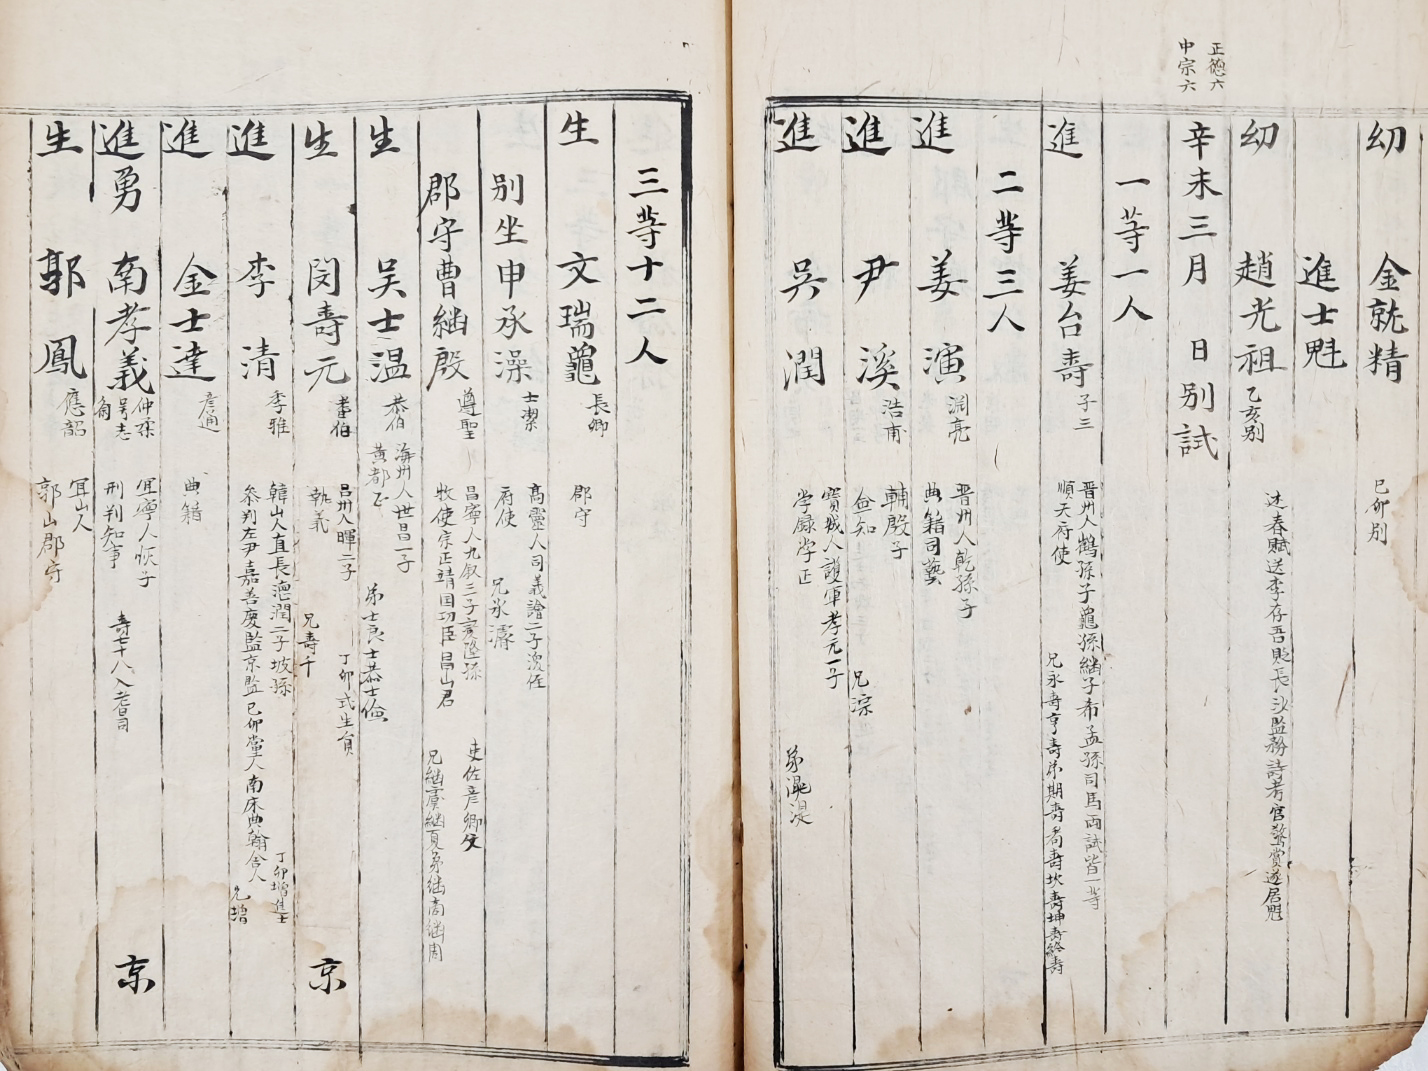 正德六
中宗六
幼 金就精 己卯別
進士魁
幼 趙光祖 乙亥別 述春賦送李存吾貶長沙監務詩考官驚賞遂居魁
辛未三月 日別試
一等一人
進 姜台壽 子三 晋州人鶴孫子龜孫継子希孟孫司馬両試皆一等
順天府使 兄永壽亨壽弟期壽
二等三人
進 姜演 渊亮 晋州人乾孫子
典籍司藝
進 尹溪 浩甫 輔殷子
僉知 兄淙
進 吳潤 寳城人護軍孝元一子
学録学正 弟混湜
三等十二人
生 文瑞龜 長卿 郡守
别坐申承澡 士潔 高靈人司義譮二子浚侄
府使 兄承濬
郡守曹継殷 遵聖 昌寧人九叙三子
牧使宗正靖国功臣昌山君 兄継虞継夏弟継商継周
生 吴士温 恭伯 海州人世昌一子
弟士良士恭士儉
生 閔壽元 耆伯 呂州人暉二子 丁卯式生員
執義 兄壽千 京
進 李清 季雅 韓山人直長德潤二子坡孫 丁卯增進士
叅判左尹嘉善慶監京監己卯黨人南床典翰舍人 兄增
進 金士達 彦通 典籍
進 勇 南孝義 仲孺 宜寧人恢子
刑判知事 壽七十八入耆司 京
生 郭鳳 應韶 宜山人
郭山郡守